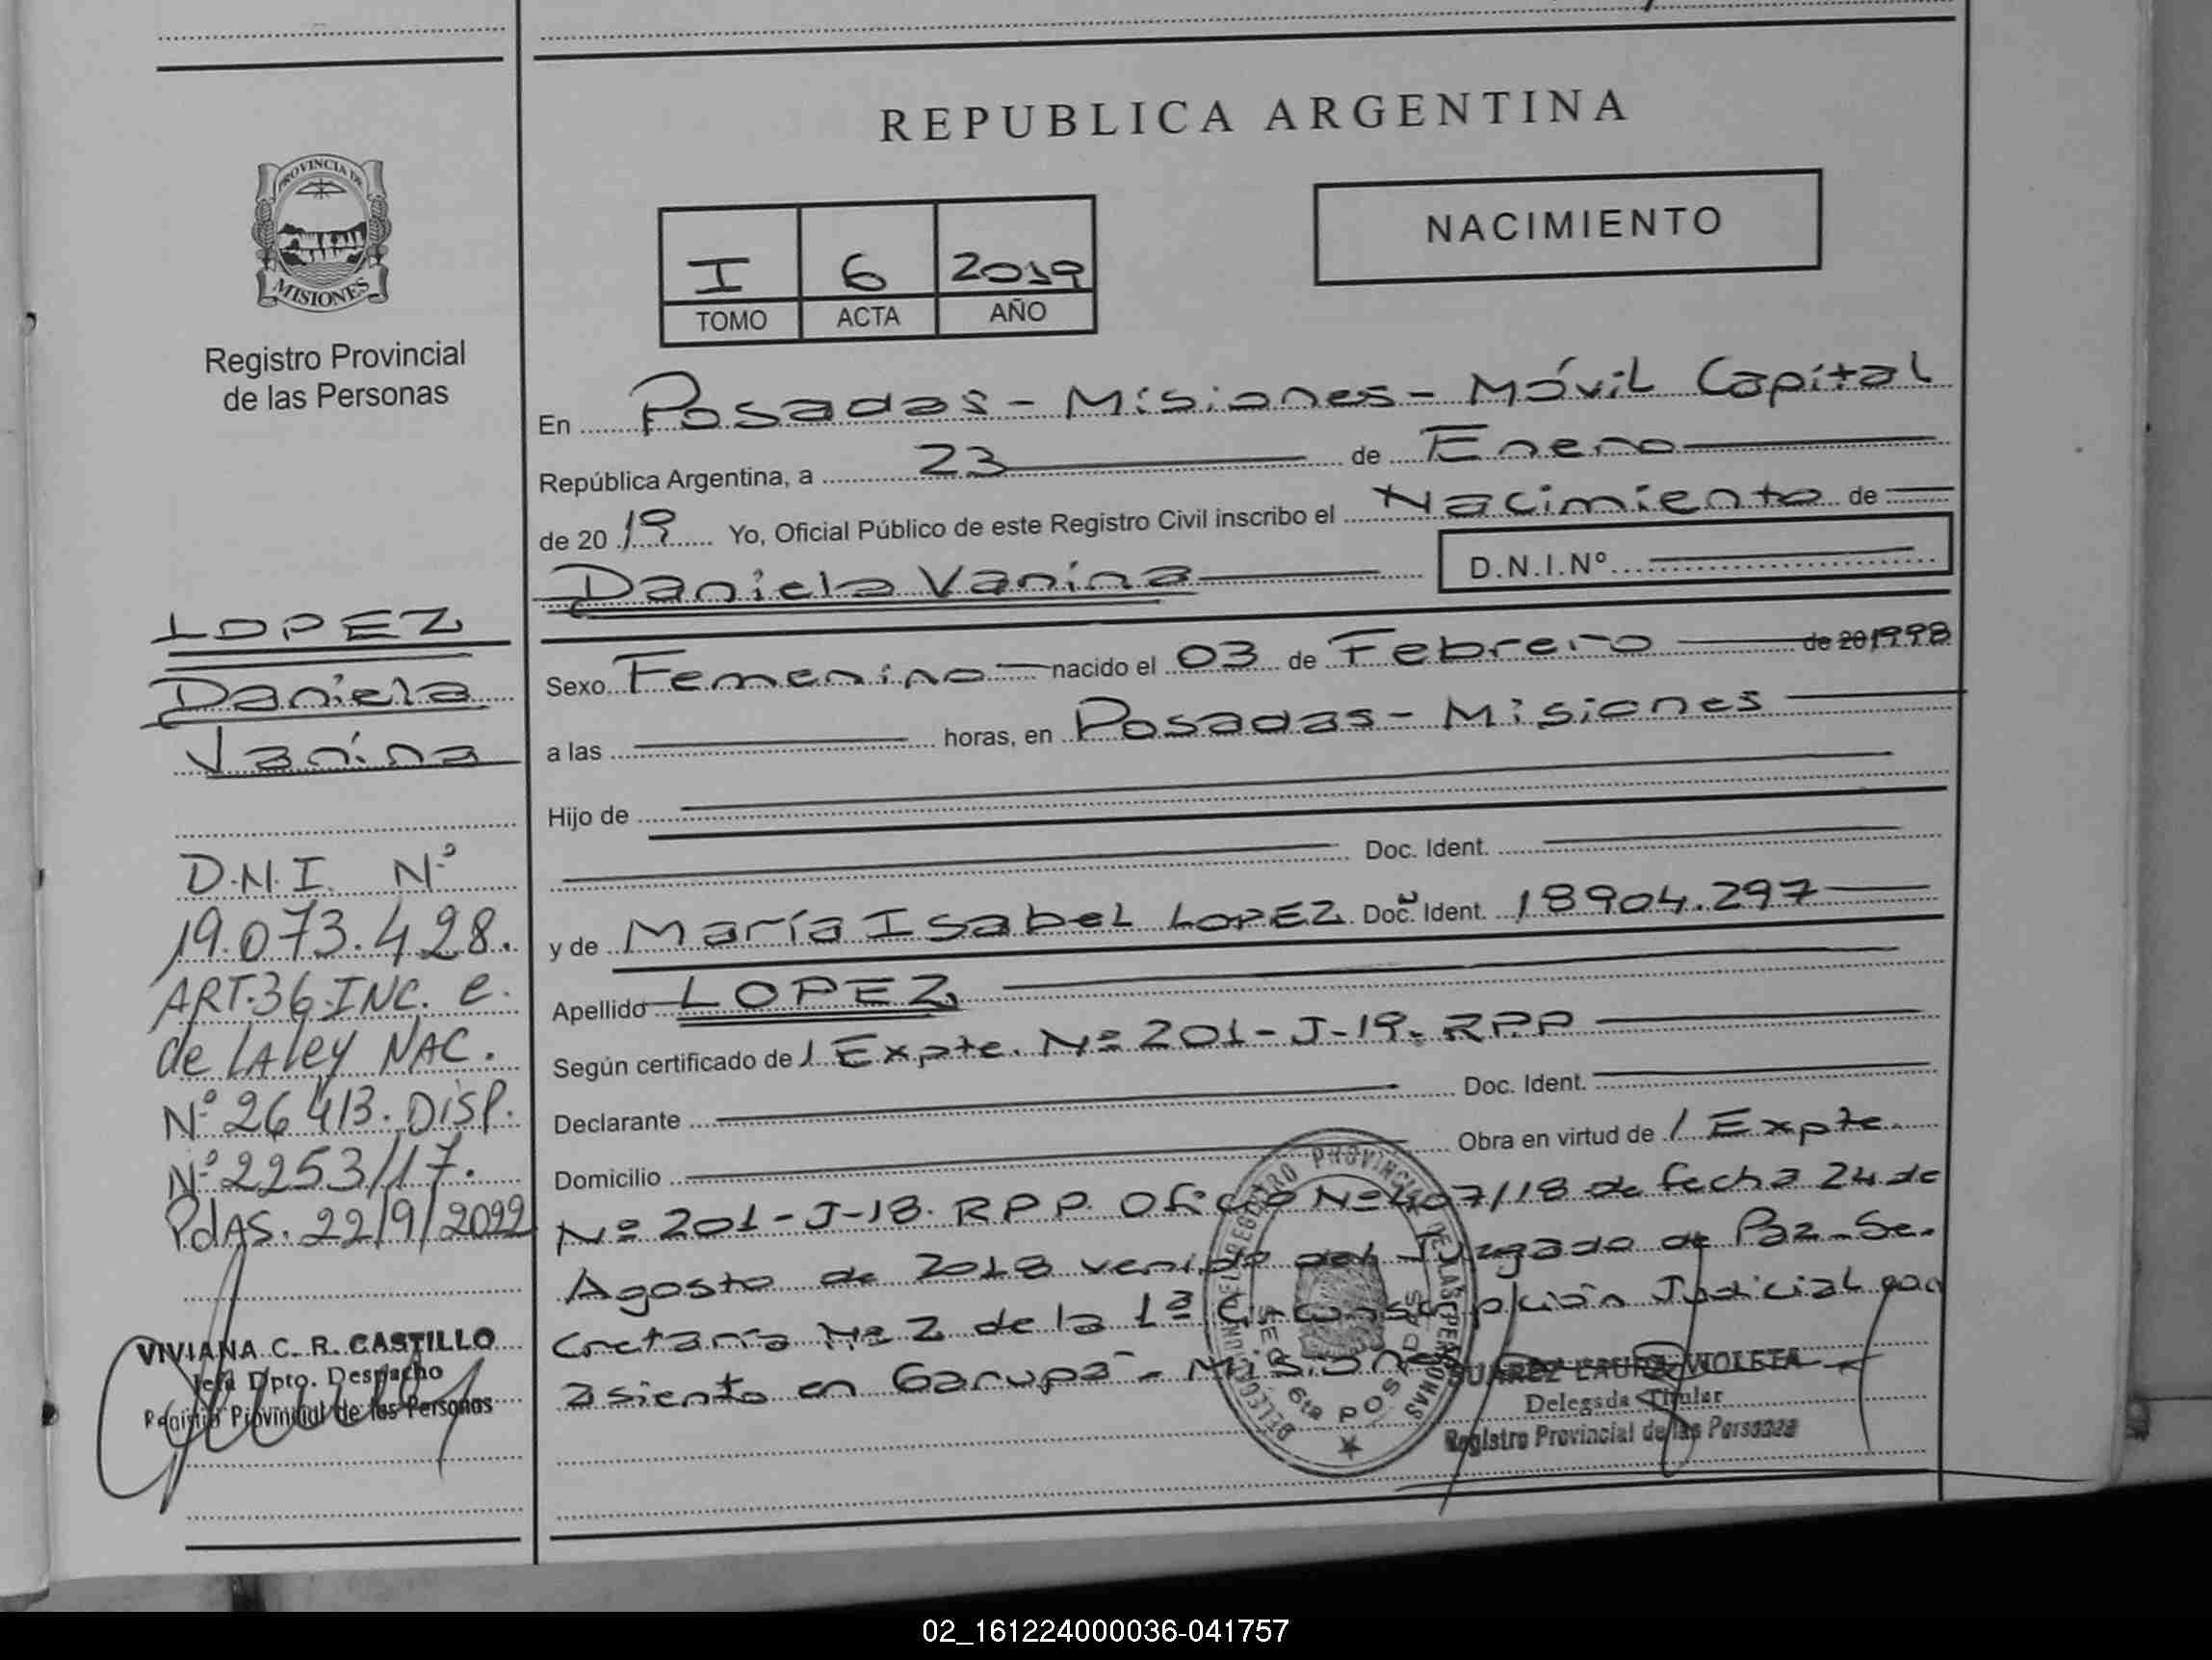 REPUBLICA ARGENTINA
PROVINCIA DE
MISIONES
Registro Provincial
de las Personas
I 6 2019
TOMO ACTA AÑO
NACIMIENTO
En Posadas - Misiones - Móvil Capital
República Argentina, a 23 de Enero
de 2019 Yo, Oficial Público de este Registro Civil inscribo el Nacimiento de
Daniela Vanina D.N.I.Nº
LOPEZ
Daniela
Vanina
Sexo Femenino nacido el 03 de Febrero de 20 1998
a las horas, en Posadas - Misiones
Hijo de
Doc. Ident.
y de María Isabel LOPEZ Doc. Ident. 18904.297
Apellido LOPEZ
Según certificado de 1 Expte. Nº 201-J-19. RPP
Declarante Doc. Ident.
Domicilio Obra en virtud de 1 Expte.
Nº 201-J-18. RPP. Oficio Nº 407/18 de fecha 24 de
Agosto de 2018 venido del Juzgado de Paz - Se-
cretaría Nº 2 de la 1ª Circunscripción Judicial con
asiento en Garupá - Misiones
D.N.I. Nº
19.073.428.
ART.36.INC. e.
de LA ley NAC.
Nº 26413. DISP.
Nº 2253/17.
PdAS. 22/9/2022
VIVIANA C. R. CASTILLO
Jefa Dpto. Despacho
Registro Provincial de las Personas
REGISTRO PROVINCIAL DE LAS PERSONAS
SEC. 6ta POSADAS
SUAREZ LAURA VIOLETA
Delegada Titular
Registro Provincial de las Personas
02_161224000036-041757